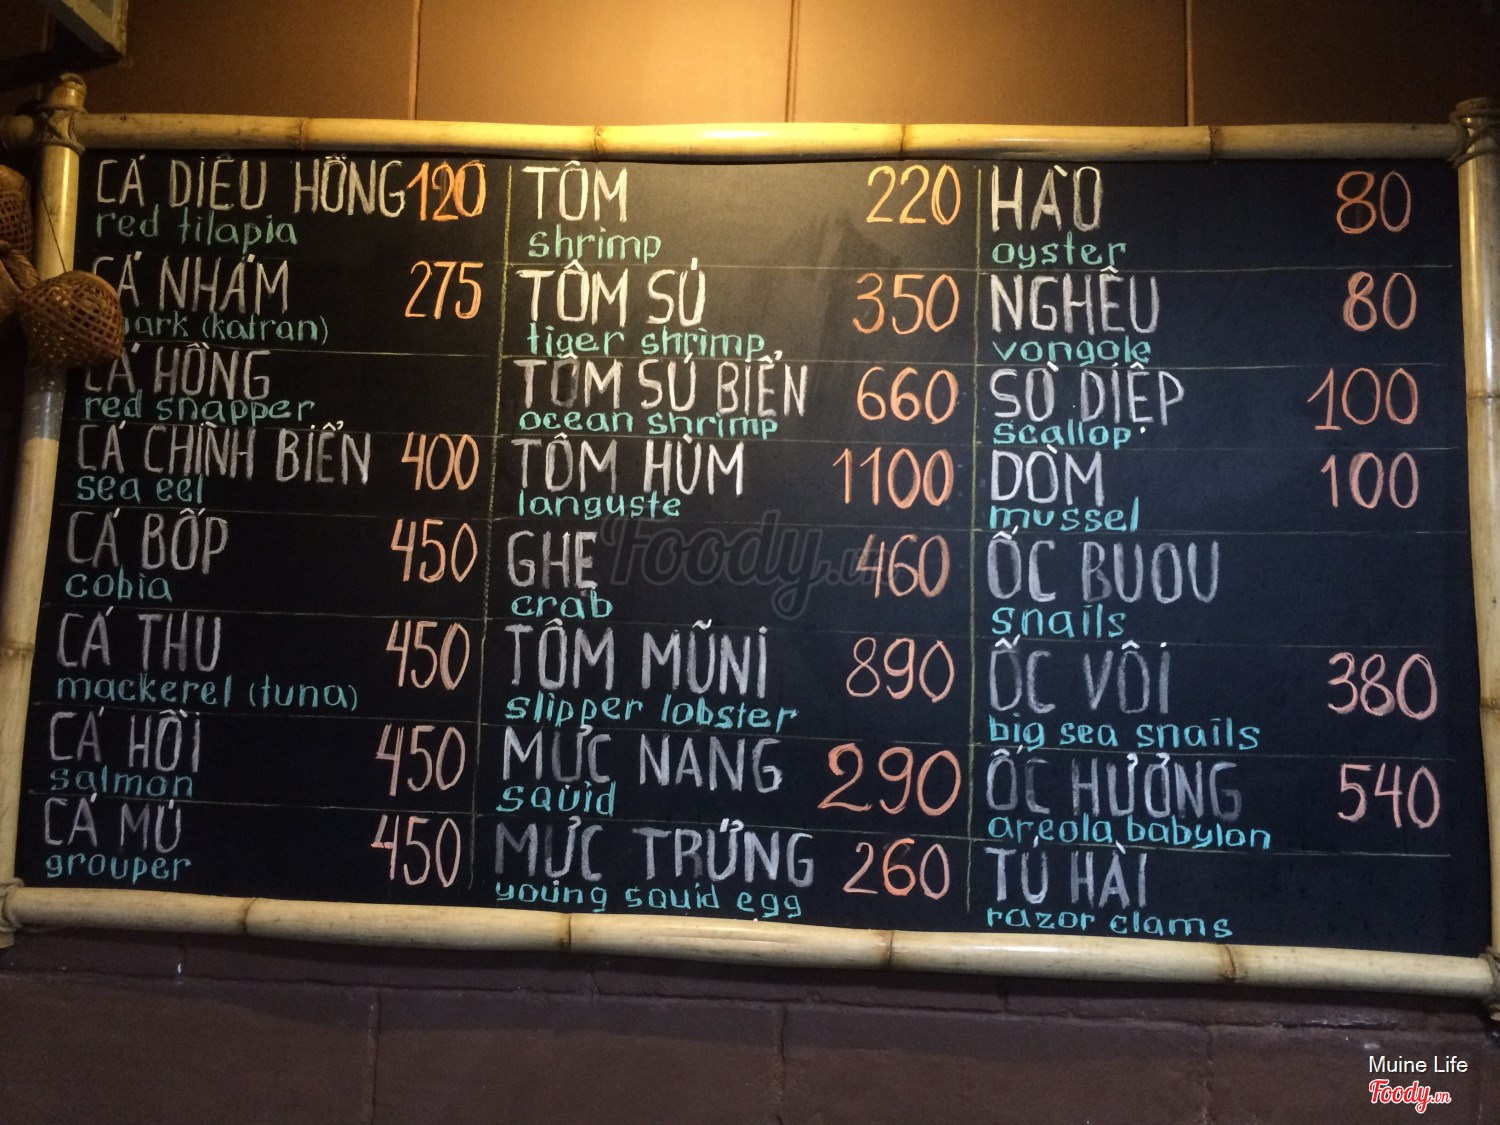 CÁ DIÊU HỒNG 120
red tilapia
CÁ NHÁM 275
ark (katran)
CÁ HỒNG
red snapper
CÁ CHÌNH BIỂN 400
sea eel
CÁ BỐP 450
cobia
CÁ THU 450
mackerel (tuna)
CÁ HỒI 450
salmon
CÁ MÚ 450
grouper
TÔM 220
shrimp
TÔM SÚ 350
tiger shrimp
TÔM SÚ BIỂN 660
ocean shrimp
TÔM HÙM 1100
languste
GHẸ 460
crab
TÔM MŨNI 890
slipper lobster
MỰC NANG 290
squid
MỰC TRỨNG 260
young squid egg
HÀO 80
oyster
NGHÊU 80
vongole
SÒ DIỆP 100
scallop
DÒM 100
mussel
ỐC BUOU
snails
ỐC VÔI 380
big sea snails
ỐC HƯỞNG 540
areola babylon
TÚ HÀI
razor clams
Foody.vn
Muine Life
Foody.vn